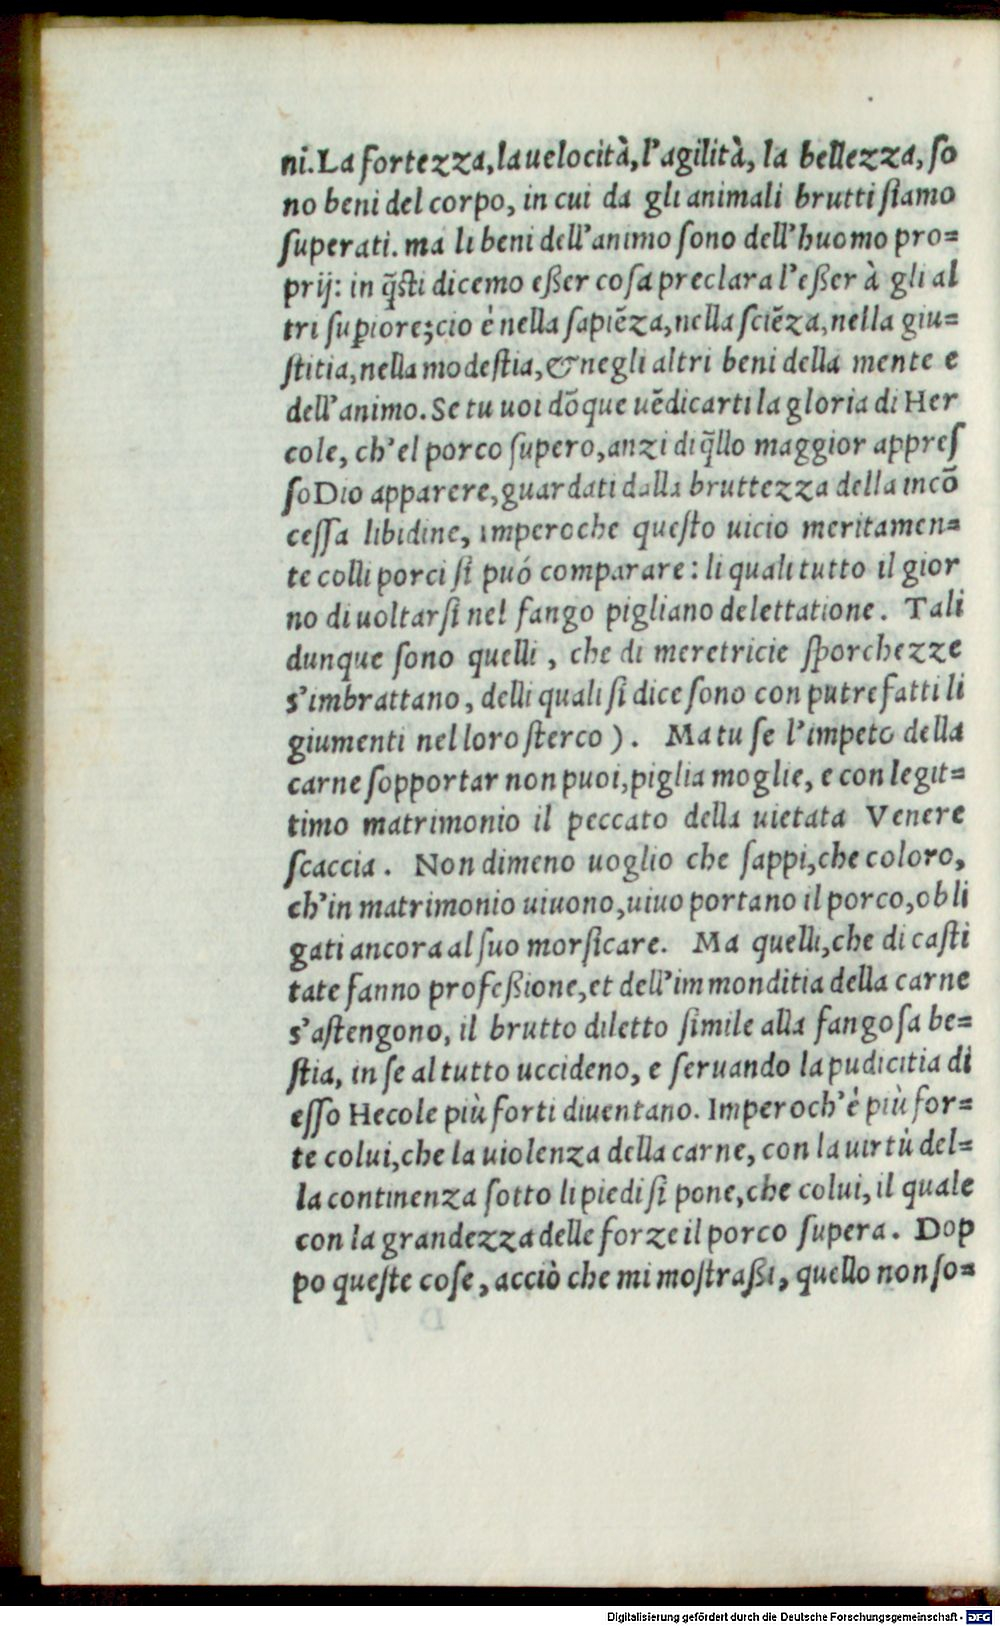 ni. La fortezza, la uelocità, l'agilità, la bellezza, so
no beni del corpo, in cui da gli animali brutti siamo
superati. ma li beni dell'animo sono dell'huomo pro=
prij: in q̃sti dicemo eßer cosa preclara l'eßer à gli al
tri sup̱iore; cio è nella sapiẽza, nella sciẽza, nella giu=
stitia, nella modestia, & negli altri beni della mente e
dell'animo. Se tu uoi dõque uẽdicarti la gloria di Her
cole, ch'el porco supero, anzi di q̃llo maggior appres
so Dio apparere, guardati dalla bruttezza della incõ
cessa libidine, imperoche questo uicio meritamen=
te colli porci si può comparare: li quali tutto il gior
no di uoltarsi nel fango pigliano delettatione. Tali
dunque sono quelli, che di meretricie sporchezze
s'imbrattano, delli quali si dice sono con putrefatti li
giumenti nel loro sterco). Ma tu se l'impeto della
carne sopportar non puoi, piglia moglie, e con legit=
timo matrimonio il peccato della uietata Venere
scaccia. Non dimeno uoglio che sappi, che coloro,
ch'in matrimonio uiuono, uiuo portano il porco, obli
gati ancora al suo morsicare. Ma quelli, che di casti
tate fanno profeßione, et dell'immonditia della carne
s'astengono, il brutto diletto simile alla fangosa be=
stia, in se al tutto uccideno, e seruando la pudicitia di
esso Hecole più forti diuentano. Imperoch'è più for=
te colui, che la uiolenza della carne, con la uirtù del=
la continenza sotto li piedi si pone, che colui, il quale
con la grandezza delle forze il porco supera. Dop
po queste cose, acciò che mi mostraßi, quello non so=
Digitalisierung gefördert durch die Deutsche Forschungsgemeinschaft - DFG